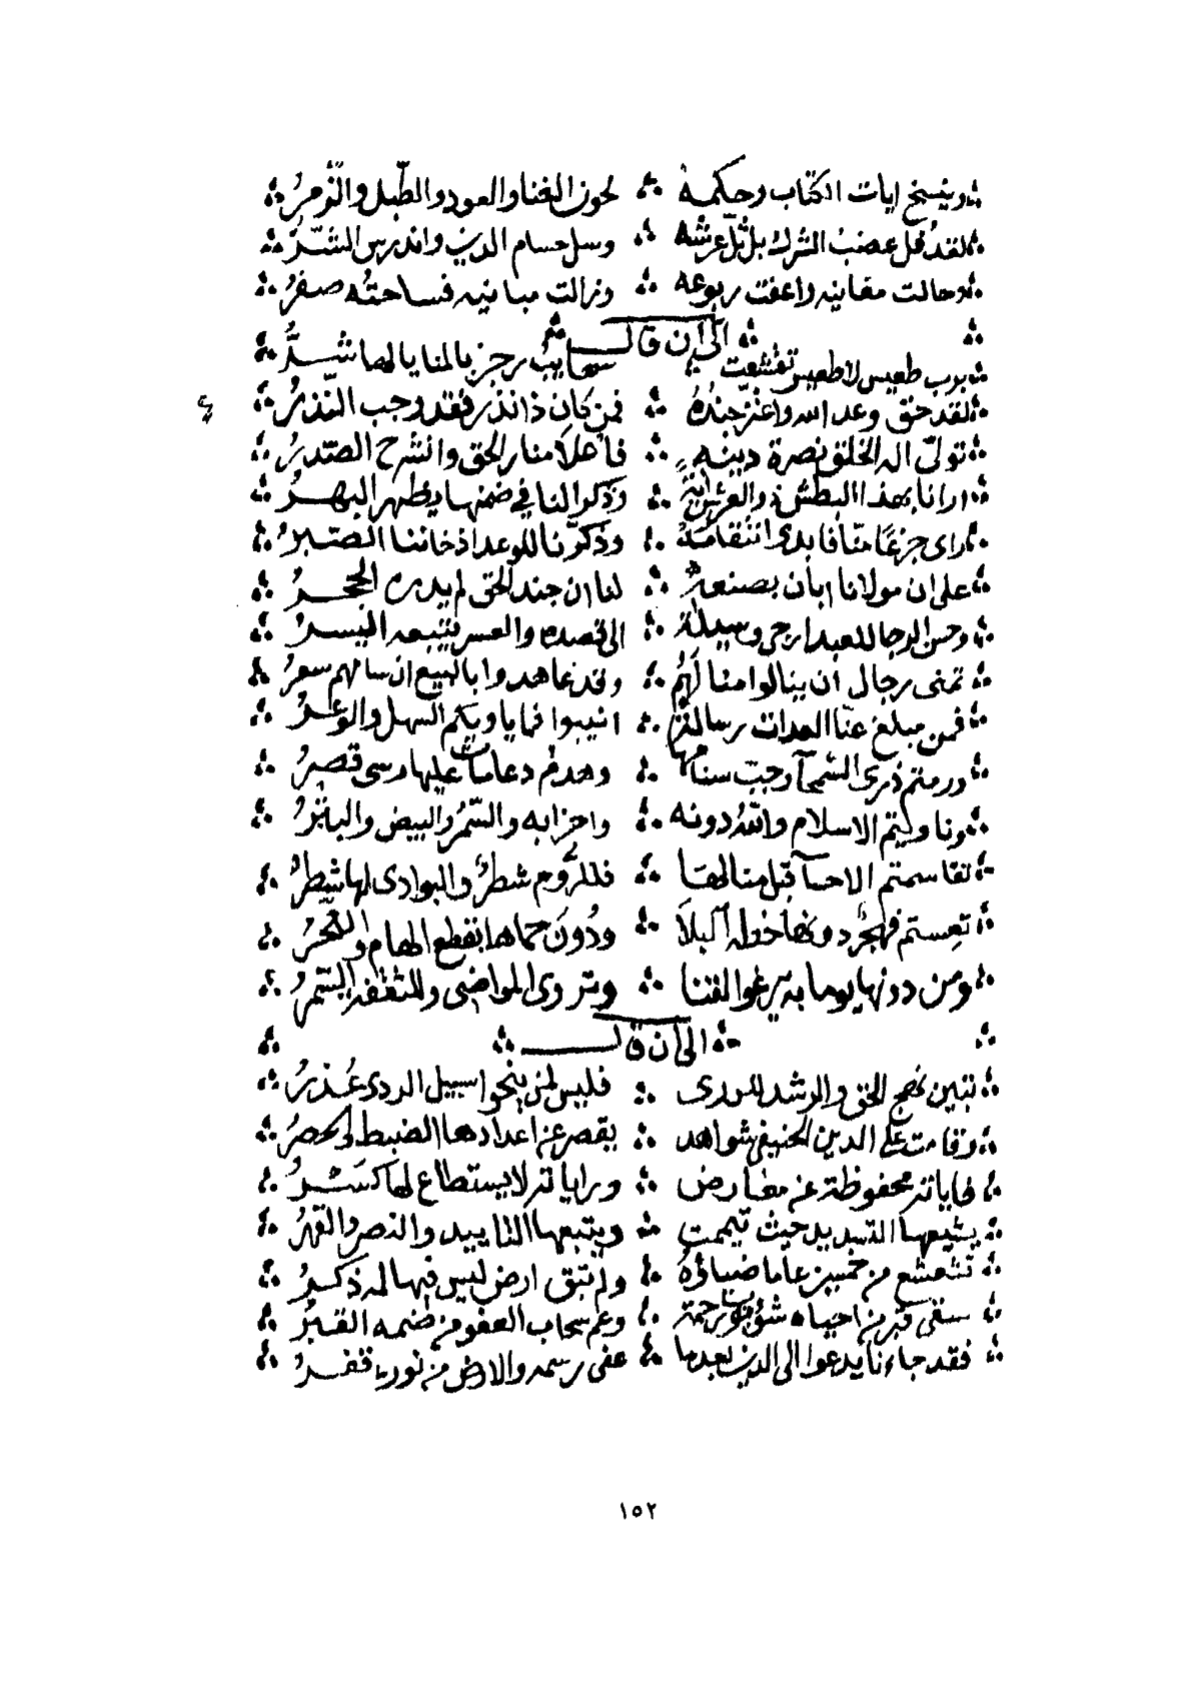 وينسخ ايات الكتاب وحكمه ∴ لحون الغنا والعود والطبل والزمرُ
لقد فل عضب الشرك بل ثل عرشه ∴ وسل حسام الدين واندرس الشرُّ
وحالت مغانيه واعفت ربوعه ∴ وزالت مبانيه فساحته صفرُ
الى ان قال
برب طعيس لا طعيس تقشعت ∴ سحايب رجز بالمنايا لها شرُّ
لقد حق وعد الله واعتز جندُهُ ∴ فمن كان ذا نذر فقد وجب النّذرُ
تولّى اله الخلق نصرة دينهِ ∴ فأعلا منار الحق وانشرح الصّدرُ
ارانا بهذا البطش ذو العرش ايةً ∴ وذكرا لنا في ضمنها يظهر البهرُ
راى جزعًا منّا فابدى انتقامَهُ ∴ وذكّرنا للوعد اذ خاننا الصّبرُ
على ان مولانا ابان بصنعه ∴ لنا ان جند الحق لم يدره الحجرُ
وحسن الرجا للعبد ارجى وسيلة ∴ الى قصده والعسر يتبعه اليسرُ
تمنى رجال ان ينالوا منالَهُم ∴ وقد عاهدوا بالبيع ان سامهم سعرُ
فمن مبلغ عنّا العدات رسالة ∴ انيبوا فما ياويكم السهل والوعرُ
ورمتم ذرى الشمّا وجبّ سنامها ∴ وهدم دعامات عليها رسى قصرُ
وناويتم الاسلام واللهُ دونه ∴ واحزابه والسّمرُ والبيض والبترُ
تقاسمتم الاحسا قبل منالها ∴ فللرّوم شطرٌ والبوادى لها شطرُ
تعستم فهجرٌ دونها خوله البلاَ ∴ ودُونَ حماها نقطع الهام والنّحرُ
ومن دونها يوما به يرعوا القنا ∴ وتروى المواضى والمثقفه السّمرُ
الى ان قال
تبين نهج الحق والرشد للورى ∴ فليس لمن ينحوا سبيل الردى عُذرُ
وقامت على الدين الحنيفى شواهد ∴ يقصر عن اعدادها الضبط والحصرُ
فاياته محفوظة عن معارض ∴ وراياته لا يستطاع لها كسْرُ
يشيعها التسديد حيث تيممت ∴ ويتبعها التاييد والنصر والقهرُ
تشعشع من خمسين عاما ضياؤهُ ∴ ولم تبق ارض ليس فيها له ذكرُ
سقى قبر من احياه شؤبوب رحمة ∴ وعم سحاب العفو من ضمه القبرُ
فقد جاءنا يدعوا الى الدين بعدما ∴ عفى رسمه والارض من نوره قفرُ
١٥٢